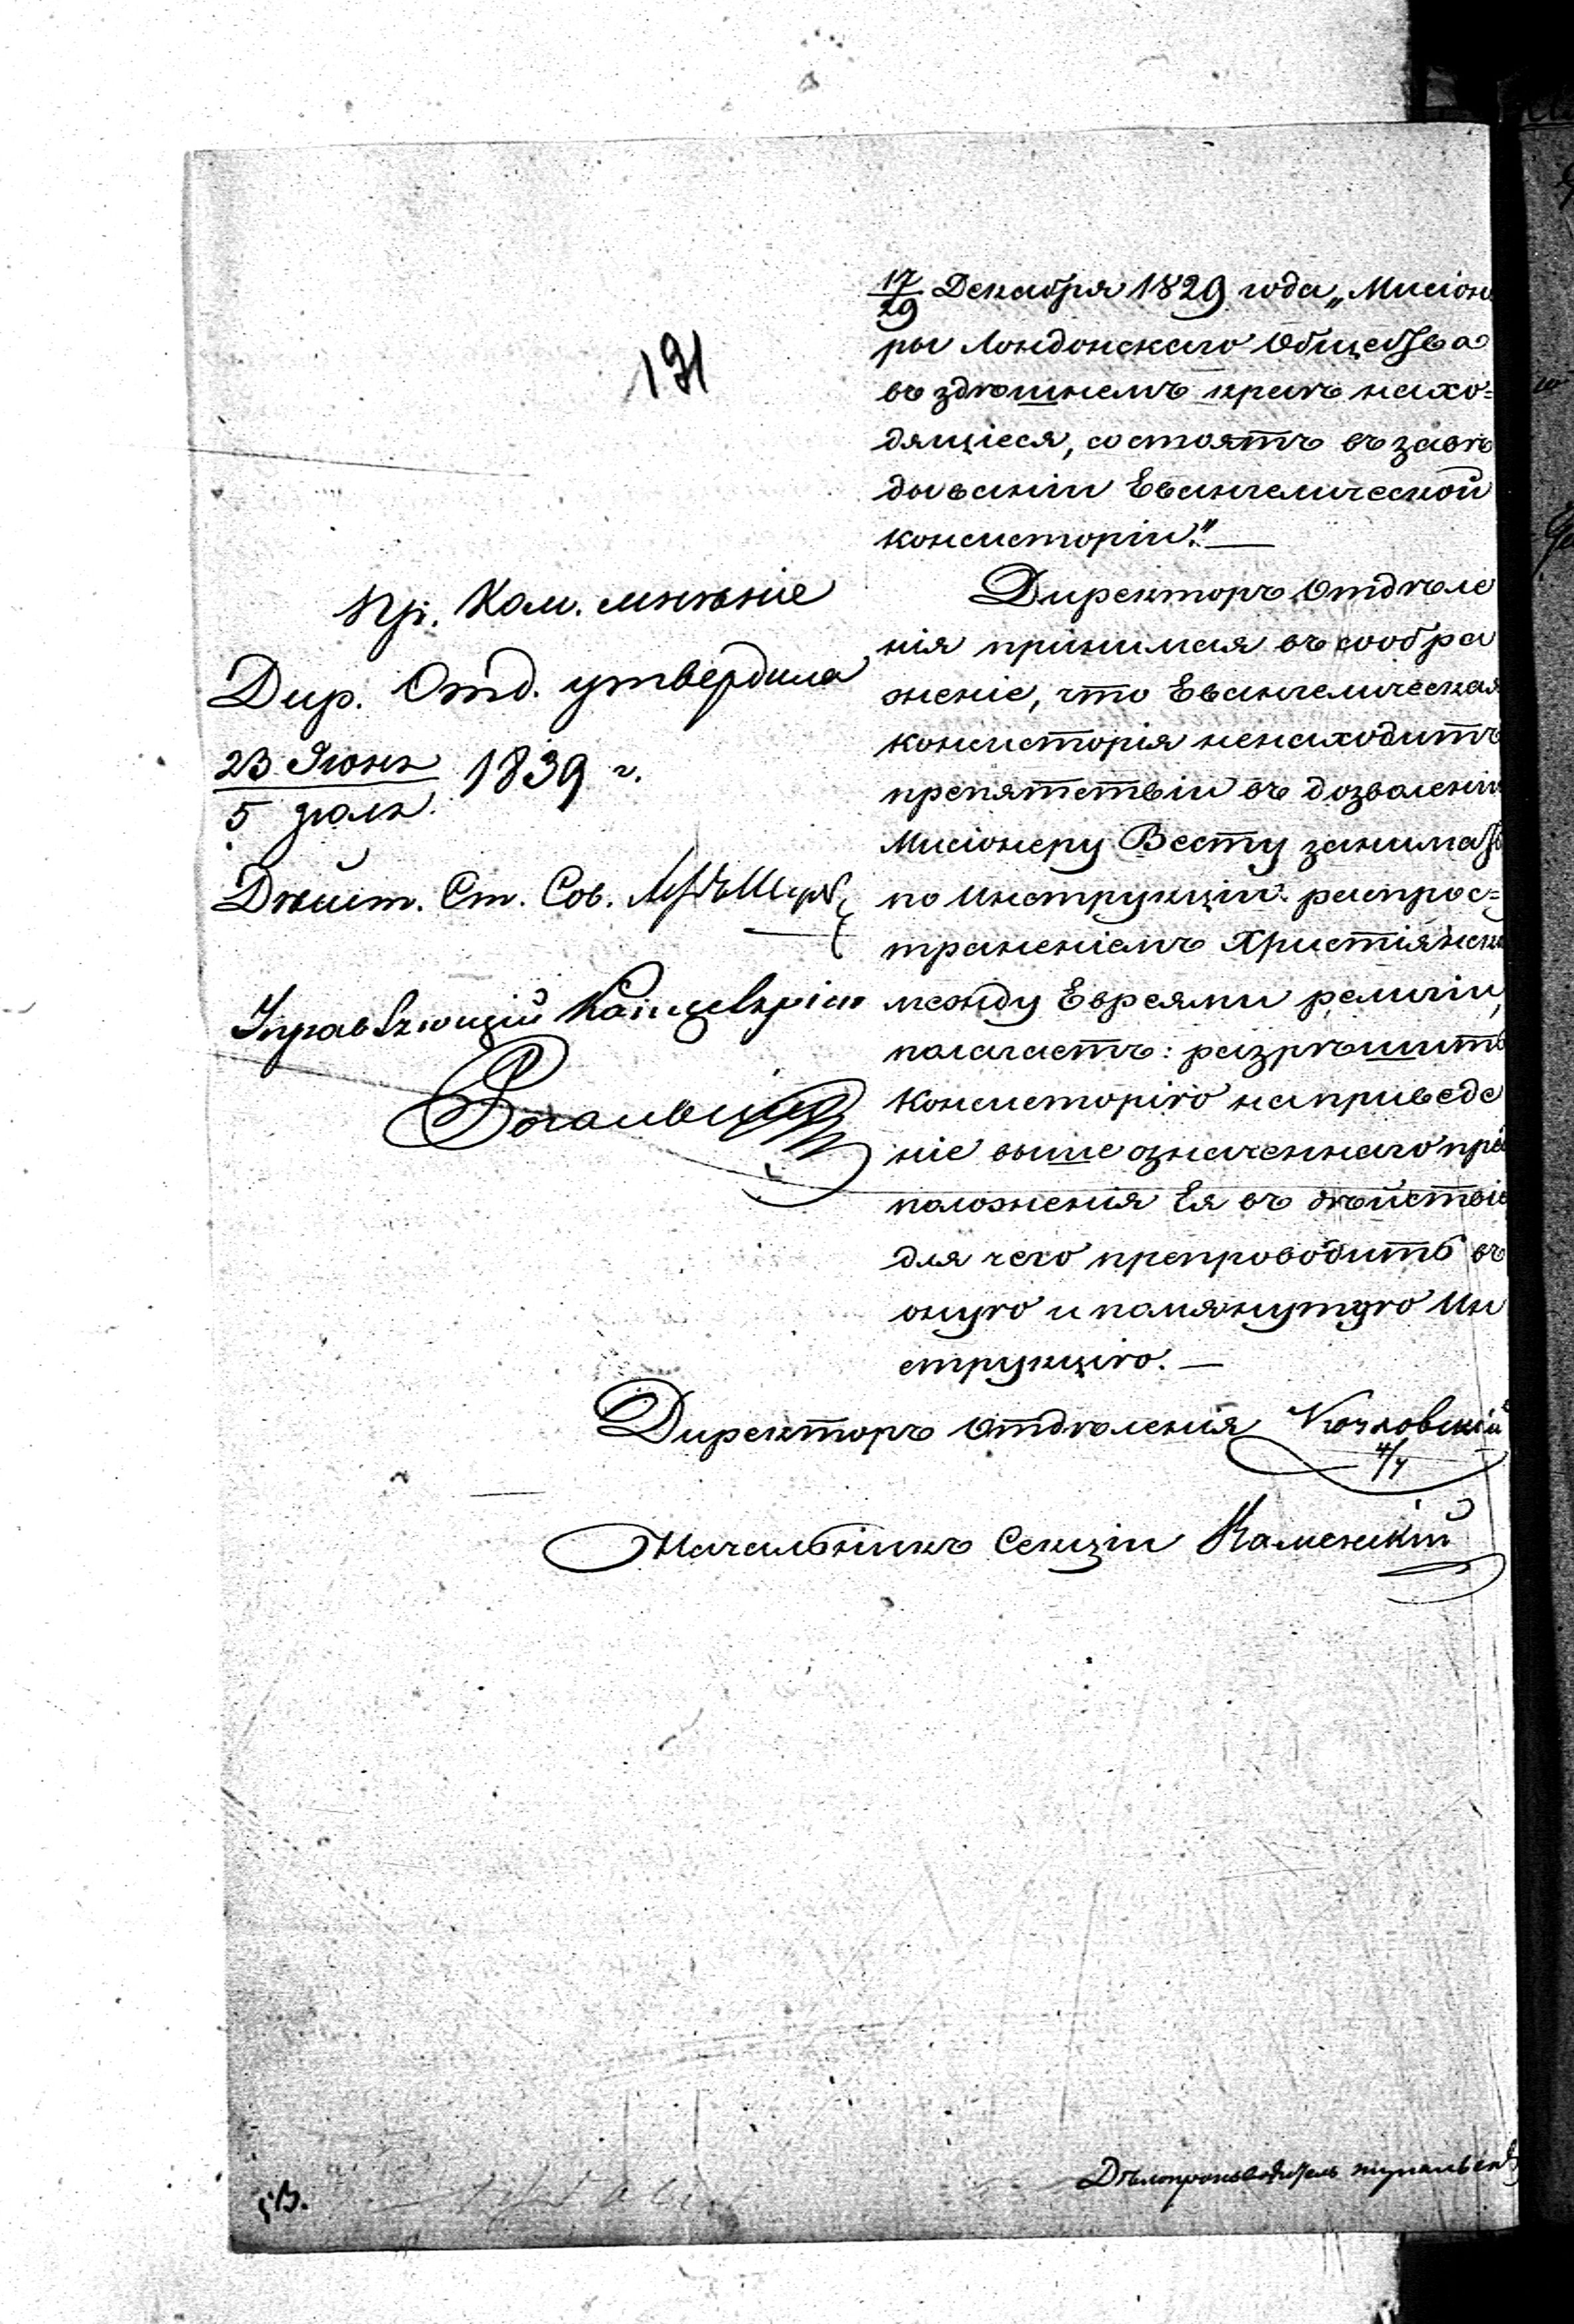 191
17/29 Декабря 1829 года „Мисіоне
ры Лондонскаго Общества
въ здѣшнемъ краѣ нахо=
дящіеся, состоятъ въ завѣ
дываніи Евангелической
консисторіи."—
Директоръ Отдѣле
нія принимая въ сообра
женіе, что Евангелическая
консисторія ненаходитъ
препятствіи въ дозволеніи
Мисіонеру Весту занимать
по инструкціи распрос=
траненіемъ Христіянск
между Евреями религіи,
полагаетъ: разрѣшить
Консисторію на приведе
ніе выше означеннаго пред
положенія Ея въ дѣйствіе
для чего препроводить въ
оную и помянутую Ин
струкцію.—
Директоръ Отдѣленія
4/7
Начальникъ Секціи Каменскій
Пр. Ком. мнѣніе
Дир. Отд. утвердила
23 Іюня / 5 Іюля 1839 г.
Дѣйст. Ст. Сов.
Управляющій Канцеляріею
Дѣлопроизводитель